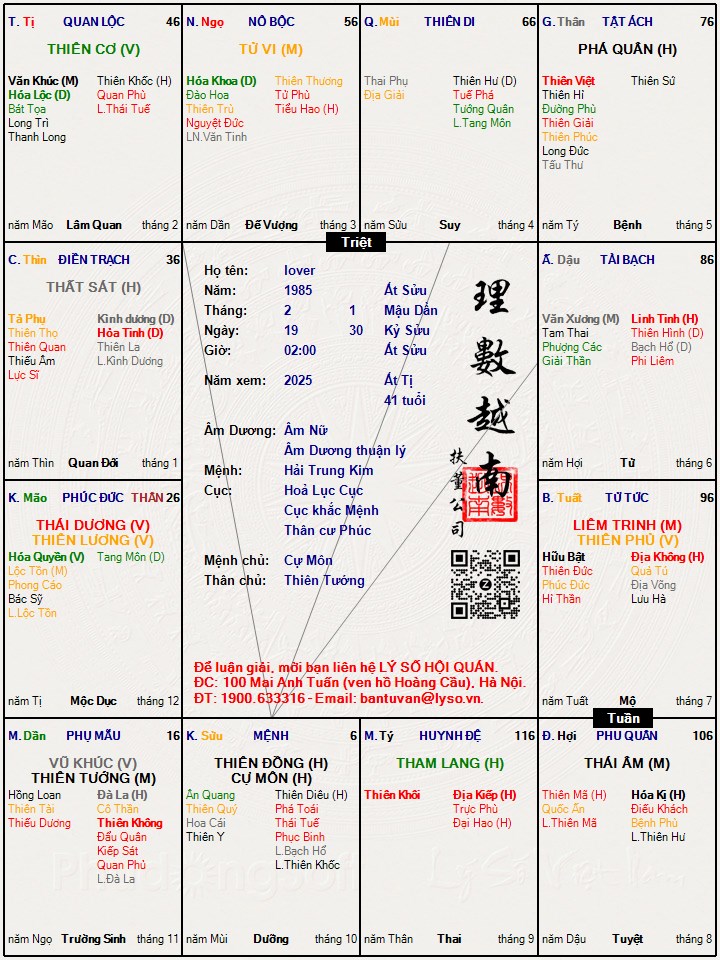 T. Tị QUAN LỘC 46
THIÊN CƠ (V)
Văn Khúc (M) Thiên Khốc (H)
Hóa Lộc (D) Quan Phù
Bát Tọa L.Thái Tuế
Long Trì
Thanh Long
năm Mão Lâm Quan tháng 2
N. Ngọ NÔ BỘC 56
TỬ VI (M)
Hóa Khoa (D) Thiên Thương
Đào Hoa Tử Phù
Thiên Trù Tiểu Hao (H)
Nguyệt Đức
LN.Văn Tinh
năm Dần Đế Vượng tháng 3
Q. Mùi THIÊN DI 66
Thai Phụ Thiên Hư (D)
Địa Giải Tuế Phá
Tướng Quân
L.Tang Môn
năm Sửu Suy tháng 4
G. Thân TẬT ÁCH 76
PHÁ QUÂN (H)
Thiên Việt Thiên Sứ
Thiên Hỉ
Đường Phù
Thiên Giải
Thiên Phúc
Long Đức
Tấu Thư
năm Tý Bệnh tháng 5
Triệt
C. Thìn ĐIỀN TRẠCH 36
THẤT SÁT (H)
Tả Phụ Kình dương (D)
Thiên Thọ Hỏa Tinh (D)
Thiên Quan Thiên La
Thiếu Âm L.Kình Dương
Lực Sĩ
năm Thìn Quan Đới tháng 1
Họ tên: lover
Năm: 1985 Ất Sửu
Tháng: 2 1 Mậu Dần
Ngày: 19 30 Kỷ Sửu
Giờ: 02:00 Ất Sửu
Năm xem: 2025 Ất Tị
41 tuổi
Âm Dương: Âm Nữ
Âm Dương thuận lý
Mệnh: Hải Trung Kim
Cục: Hoả Lục Cục
Cục khắc Mệnh
Thân cư Phúc
Mệnh chủ: Cự Môn
Thân chủ: Thiên Tướng
理數越南
扶董公司
Z
Để luận giải, mời bạn liên hệ LÝ SỐ HỘI QUÁN.
ĐC: 100 Mai Anh Tuấn (ven hồ Hoàng Cầu), Hà Nội.
ĐT: 1900.633316 - Email: bantuvan@lyso.vn.
Ấ. Dậu TÀI BẠCH 86
Văn Xương (M) Linh Tinh (H)
Tam Thai Thiên Hình (D)
Phượng Các Bạch Hổ (D)
Giải Thần Phi Liêm
năm Hợi Tử tháng 6
K. Mão PHÚC ĐỨC THÂN 26
THÁI DƯƠNG (V)
THIÊN LƯƠNG (V)
Hóa Quyền (V) Tang Môn (D)
Lộc Tồn (M)
Phong Cáo
Bác Sỹ
L.Lộc Tồn
năm Tị Mộc Dục tháng 12
B. Tuất TỬ TỨC 96
LIÊM TRINH (M)
THIÊN PHỦ (V)
Hữu Bật Địa Không (H)
Thiên Đức Quả Tú
Phúc Đức Địa Võng
Hỉ Thần Lưu Hà
năm Tuất Mộ tháng 7
Tuần
M. Dần PHỤ MẪU 16
VŨ KHÚC (V)
THIÊN TƯỚNG (M)
Hồng Loan Đà La (H)
Thiên Tài Cô Thần
Thiếu Dương Thiên Không
Đẩu Quân
Kiếp Sát
Quan Phủ
L.Đà La
năm Ngọ Trường Sinh tháng 11
K. Sửu MỆNH 6
THIÊN ĐỒNG (H)
CỰ MÔN (H)
Ân Quang Thiên Diêu (H)
Thiên Quý Phá Toái
Hoa Cái Thái Tuế
Thiên Y Phục Binh
L.Bạch Hổ
L.Thiên Khốc
năm Mùi Dưỡng tháng 10
M. Tý HUYNH ĐỆ 116
THAM LANG (H)
Thiên Khôi Địa Kiếp (H)
Trực Phù
Đại Hao (H)
năm Thân Thai tháng 9
Đ. Hợi PHU QUÂN 106
THÁI ÂM (M)
Thiên Mã (H) Hóa Kị (H)
Quốc Ấn Điếu Khách
L.Thiên Mã Bệnh Phù
L.Thiên Hư
năm Dậu Tuyệt tháng 8